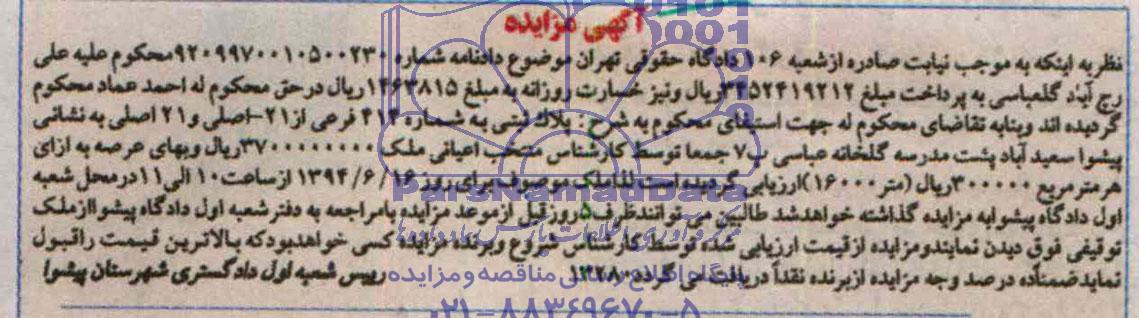 آگهی مزایده
نظر به اینکه به موجب نیابت صادره از شعبه ۱۰۶ دادگاه حقوقی تهران موضوع دادنامه شماره ۹۲۰۹۹۷۰۰۱۰۵۰۰۲۳۰ محکوم علیه علی
رچ آباد گلعباسی به پرداخت مبلغ ۳۴۵۲۴۱۹۲۱۲ ریال ونیز خسارت روزانه به مبلغ ۱۴۶۳۸۱۵ ریال در حق محکوم له احمد عماد محکوم
گردیده اند وبنابه تقاضای محکوم له جهت استیفای محکوم به شرح : پلاک ثبتی به شماره ۴۱۴ فرعی از ۲۱-اصلی و ۲۱ اصلی به نشانی
پیشوا سعید آباد پشت مدرسه گلخانه عباسی پ۷ جمعا توسط کارشناس منتخب اعیانی ملک ۳۷۰۰۰۰۰۰۰۰۰ ریال وبهای عرصه به ازای
هرمترمربع ۳۰۰۰۰۰ ریال (متر ۱۶۰۰۰) ارزیابی گردیده است لذا ملک موصوف برای روز ۱۳۹۴/۶/۱۶ از ساعت ۱۰ الی ۱۱ در محل شعبه
اول دادگاه پیشوا به مزایده گذاشته خواهد شد طالبین می توانند ظرف ۵ روز قبل از موعد مزایده با مراجعه به دفتر شعبه اول دادگاه پیشوا از ملک
توقیفی فوق دیدن نمایند ومزایده از قیمت ارزیابی شده توسط کارشناس شروع وبرنده مزایده کسی خواهد بود که بالاترین قیمت را قبول
نماید ضمنا ده درصد وجه مزایده از برنده نقداً دریافت می گردد ۱۲۲۸۰ رییس شعبه اول دادگستری شهرستان پیشوا
ParsNamadData
پایگاه اطلاع رسانی مناقصه و مزایده
۰۲۱-۸۸۳۴۹۶۷۰-۵